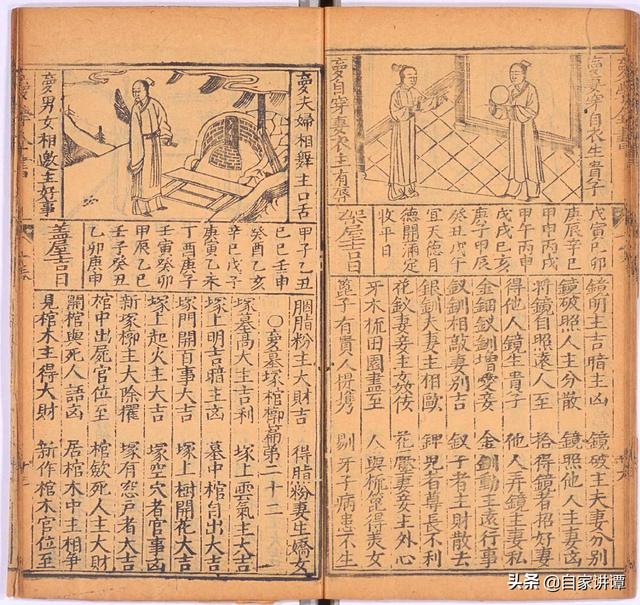 夢妻穿自衣生貴子
夢自穿妻衣主有辱
戊寅己卯
庚辰辛巳
甲申丙戌
甲午丙申
戊戌己亥
庚子甲辰
癸丑戊午
宜天德月
德開滿定
收平日
架屋吉日
鏡明主吉暗主凶 鏡破主夫妻分別
鏡破照人主分散 鏡照他人主妻凶
將鏡自照遠人至 拾得鏡者招好妻
得他人鏡生貴子 他人弄鏡主妻私
金釵釧增愛妾 金釧動主遠行事
釵釧相敲妻別吉 釵子者主財散去
銀釧夫妻主相毆 者尊長不利
花釵妻妾主姦 花靨妻妾主外心
牙木梳田園盡至 人與梳篦得美女
子有貴人提携 剔牙子病患不生
夢夫婦相舞主口舌
夢男女相邀主好事
甲子乙丑
己巳壬申
癸酉乙亥
辛巳戊子
庚寅乙未
丁酉庚子
壬寅癸卯
甲辰乙巳
壬子癸丑
乙卯庚申
蓋屋吉日
胭脂粉主大財吉 得脂粉妻生嬌女
○夢墓塚棺槨篇第二十二
塚墓高大主吉利 塚上雲氣主大吉
塚上明吉暗主凶 墓中棺自出大吉
塚門開百事大吉 塚上樹開花大吉
塚上起火主大吉 塚空穴者官事凶
新塚槨主大除擢 塚有窓戶者大吉
棺中出屍官位至 棺歛死人主大吉
開棺與死人語凶 居棺木中主相爭
見棺木主得大財 新作棺木官位至
头条 @自家讲谭